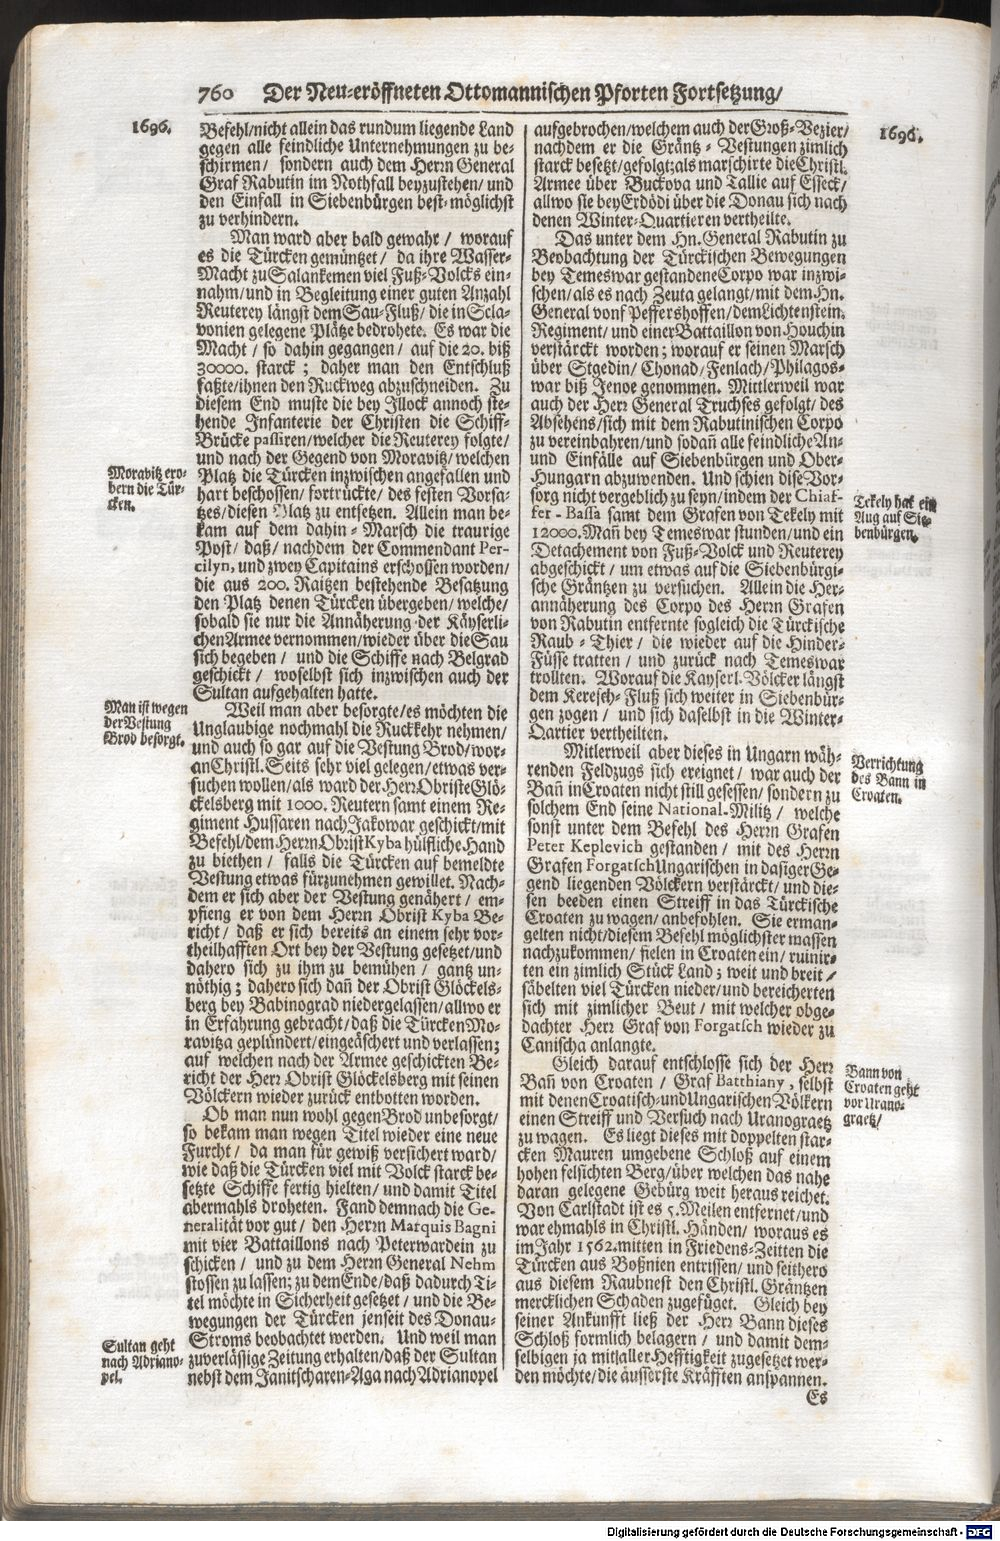 760 Der Neu-eröffneten Ottomannischen Pforten Fortsetzung/
1696.
Befehl/nicht allein das rundum liegende Land
gegen alle feindliche Unternehmungen zu be-
schirmen/ sondern auch dem Herrn General
Graf Rabutin im Nothfall beyzustehen/ und
den Einfall in Siebenbürgen best-möglichst
zu verhindern.
Man ward aber bald gewahr/ worauf
es die Türcken gemüntzet/ da ihre Wasser-
Macht zu Salankemen viel Fuß-Volcks ein-
nahm/und in Begleitung einer guten Anzahl
Reuterey längst dem Sau-Fluß/ die in Scla-
vonien gelegene Plätze bedrohete. Es war die
Macht/ so dahin gegangen/ auf die 20. biß
30000. starck; daher man den Entschluß
faßte/ihnen den Ruckweg abzuschneiden. Zu
diesem End muste die bey Illock annoch ste-
hende Infanterie der Christen die Schiff-
Brücke passiren/welcher die Reuterey folgte/
und nach der Gegend von Moravitz/welchen
Platz die Türcken inzwischen angefallen und
hart beschossen/ fortrückte/ des festen Vorsa-
tzes/diesen Platz zu entsetzen. Allein man be-
kam auf dem dahin-Marsch die traurige
Post/ daß/ nachdem der Commendant Per-
cilyn, und zwey Capitains erschossen worden/
die aus 200. Raitzen bestehende Besatzung
den Platz denen Türcken übergeben/welche/
sobald sie nur die Annäherung der Käyserli-
chen Armee vernommen/wieder über die Sau
sich begeben/ und die Schiffe nach Belgrad
geschickt/ woselbst sich inzwischen auch der
Sultan aufgehalten hatte.
Moravitz ero-
bern die Tür-
cken.
Weil man aber besorgte/es möchten die
Unglaubige nochmahl die Ruckkehr nehmen/
und auch so gar auf die Vestung Brod/wor-
an Christl. Seits sehr viel gelegen/etwas ver-
suchen wollen/als ward der Herr Obriste Glö-
ckelsberg mit 1000. Reutern samt einem Re-
giment Hussaren nach Jakowar geschickt/mit
Befehl/dem Herrn Obrist Kyba hülfliche Hand
zu biethen/ falls die Türcken auf bemeldte
Vestung etwas fürzunehmen gewillet. Nach-
dem er sich aber der Vestung genähert/ em-
pfieng er von dem Herrn Obrist Kyba Be-
richt/ daß er sich bereits an einem sehr vor-
theilhafften Ort bey der Vestung gesetzet/und
dahero sich zu ihm zu bemühen/ gantz un-
nöthig; dahero sich dañ der Obrist Glöckels-
berg bey Babinograd niedergelassen/allwo er
in Erfahrung gebracht/daß die Türcken Mo-
ravitza geplündert/eingeäschert und verlassen;
auf welchen nach der Armee geschickten Be-
richt der Herr Obrist Glöckelsberg mit seinen
Völckern wieder zurück entbotten worden.
Man ist wegen
der Vestung
Brod besorgt.
Ob man nun wohl gegen Brod unbesorgt/
so bekam man wegen Titel wieder eine neue
Furcht/ da man für gewiß versichert ward/
wie daß die Türcken viel mit Volck starck be-
setzte Schiffe fertig hielten/ und damit Titel
abermahls droheten. Fand demnach die Ge-
neralität vor gut/ den Herrn Marquis Bagni
mit vier Battaillons nach Peterwardein zu
schicken/ und zu dem Herrn General Nehm
stossen zu lassen; zu dem Ende/daß dadurch Ti-
tel möchte in Sicherheit gesetzet/ und die Be-
wegungen der Türcken jenseit des Donau-
Stroms beobachtet werden. Und weil man
zuverläßige Zeitung erhalten/daß der Sultan
nebst dem Janitscharen-Aga nach Adrianopel
Sultan geht
nach Adriano-
pel.
1696.
aufgebrochen/welchem auch der Groß-Vezier/
nachdem er die Gräntz-Vestungen zimlich
starck besetzt/gefolgt: als marschirte die Christl.
Armee über Buckova und Tallie auf Esseck/
allwo sie bey Erdödi über die Donau sich nach
denen Winter-Quartieren vertheilte.
Das unter dem Hn. General Rabutin zu
Beobachtung der Türckischen Bewegungen
bey Temeswar gestandene Corpo war inzwi-
schen/als es nach Zeuta gelangt/mit dem Hn.
General vonf Peffershoffen/dem Lichtenstein.
Regiment/und einer Battaillon von Houchin
verstärckt worden; worauf er seinen Marsch
über Stgedin/Chonad/Fenlach/Philagos-
war biß Jenoe genommen. Mittlerweil war
auch der Herr General Truchses gefolgt/des
Absehens/sich mit dem Rabutinischen Corpo
zu vereinbahren/und sodañ alle feindliche An-
und Einfälle auf Siebenbürgen und Ober-
Hungarn abzuwenden. Und schien dise Vor-
sorg nicht vergeblich zu seyn/indem der Chiaf-
fer-Bassa samt dem Grafen von Tekely mit
12000. Mañ bey Temeswar stunden/und ein
Detachement von Fuß-Volck und Reuterey
abgeschickt/ um etwas auf die Siebenbürgi-
sche Gräntzen zu versuchen. Allein die Her-
annäherung des Corpo des Herrn Grafen
von Rabutin entfernte sogleich die Türckische
Raub-Thier/ die wieder auf die Hinder-
Füsse tratten/ und zurück nach Temeswar
trollten. Worauf die Kayserl. Völcker längst
dem Keresch-Fluß sich weiter in Siebenbür-
gen zogen/ und sich daselbst in die Winter-
Qartier vertheilten.
Tekely hat ein
Aug auf Sie-
benbürgen.
Mitlerweil aber dieses in Ungarn wäh-
renden Feldzugs sich ereignet/ war auch der
Bañ in Croaten nicht still gesessen/sondern zu
solchem End seine National-Militz/ welche
sonst unter dem Befehl des Herrn Grafen
Peter Keplevich gestanden/ mit des Herrn
Grafen Forgatsch Ungarischen in dasiger Ge-
gend liegenden Völckern verstärckt/und die-
sen beeden einen Streiff in das Türckische
Croaten zu wagen/anbefohlen. Sie erman-
gelten nicht/diesem Befehl möglichster massen
nachzukommen/ fielen in Croaten ein/ruinir-
ten ein zimlich Stück Land; weit und breit/
säbelten viel Türcken nieder/und bereicherten
sich mit zimlicher Beut/ mit welcher obge-
dachter Herr Graf von Forgatsch wieder zu
Canischa anlangte.
Verrichtung
des Bann in
Croaten.
Gleich darauf entschlosse sich der Herr
Bañ von Croaten/ Graf Batthiany, selbst
mit denen Croatisch-und Ungarischen Völkern
einen Streiff und Versuch nach Uranograetz
zu wagen. Es liegt dieses mit doppelten star-
cken Mauren umgebene Schloß auf einem
hohen felsichten Berg/über welchen das nahe
daran gelegene Gebürg weit heraus reichet.
Von Carlstadt ist es 5. Meilen entfernet/und
war ehmahls in Christl. Händen/woraus es
im Jahr 1562. mitten in Friedens-Zeitten die
Türcken aus Boßnien entrissen/ und seithero
aus diesem Raubnest den Christl. Gräntzen
mercklichen Schaden zugefüget. Gleich bey
seiner Ankunfft ließ der Herr Bann dieses
Schloß formlich belagern/ und damit dem-
selbigen ja mit aller Hefftigkeit zugesetzet wer-
den möchte/die äusserste Kräfften anspannen.
Bann von
Croaten geht
vor Urano-
graetz/
Es
Digitalisierung gefördert durch die Deutsche Forschungsgemeinschaft - DFG